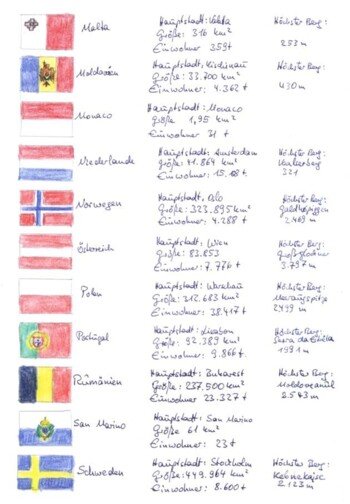 Malta
Hauptstadt: Valetta
Größe: 316 km²
Einwohner: 359 t
Höchster Berg:
253 m
Moldavien
Hauptstadt: Kischinau
Größe: 33.700 km²
Einwohner: 4.362 t
Höchster Berg:
430 m
Monaco
Hauptstadt: Monaco
Größe 1,95 km²
Einwohner 31 t
Niederlande
Hauptstadt: Amsterdam
Größe: 41.864 km²
Einwohner:
Höchster Berg:
Vaalserberg
321
Norwegen
Hauptstadt: Oslo
Größe: 323.895 km²
Einwohner: 4.288 t
Höchster Berg:
Galdhøpiggen
2.469 m
Österreich
Hauptstadt: Wien
Größe: 83.853
Einwohner: 7.776 t
Höchster Berg:
Großglockner
3.797 m
Polen
Hauptstadt: Warschau
Größe: 312.683 km²
Einwohner: 38.417 t
Höchster Berg:
Meeraugspitze
2499 m
Portugal
Hauptstadt: Lissabon
Größe: 92.389 km²
Einwohner: 9.866 t
Höchster Berg:
Serra da Estrela
1991 m
Rumänien
Hauptstadt: Bukarest
Größe: 237.500 km²
Einwohner 23.327 t
Höchster Berg:
Moldoveanul
2.543 m
San Marino
Hauptstadt: San Marino
Größe 61 km²
Einwohner: 23 t
Schweden
Hauptstadt: Stockholm
Größe: 449.964 km²
Einwohner: 8.600 t
Höchster Berg:
Kebnekajse
2.123 m